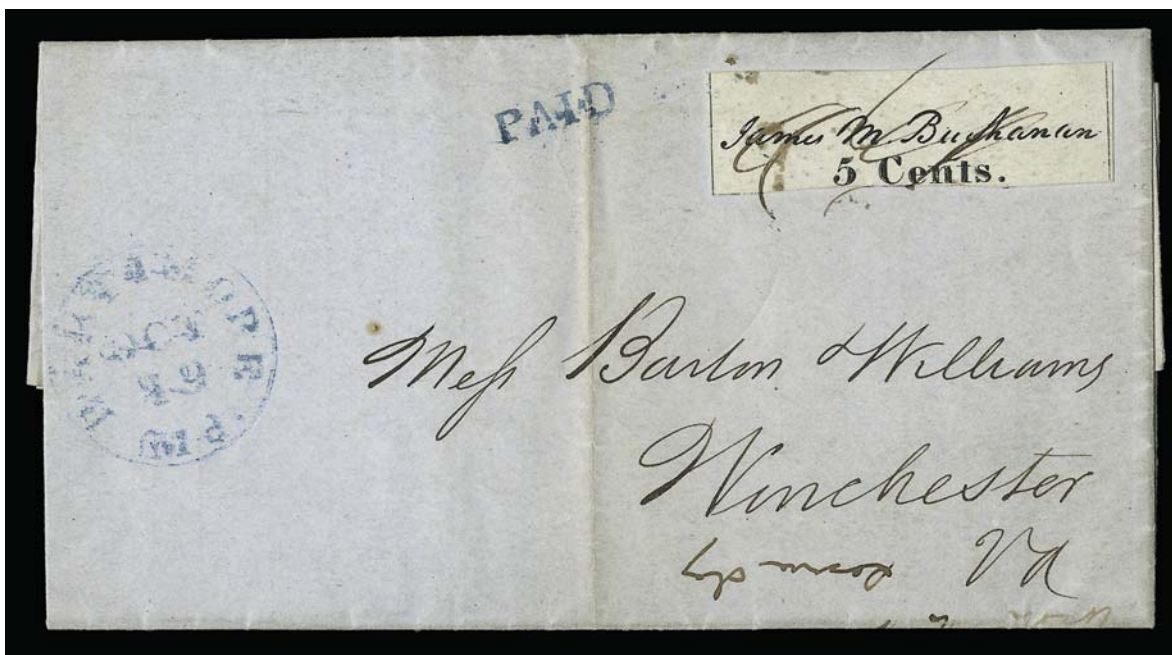 PAID
James M. Buchanan
5 Cents.
BALTIMORE Md.
NOV
Mess Barton & Williams
Winchester
Va